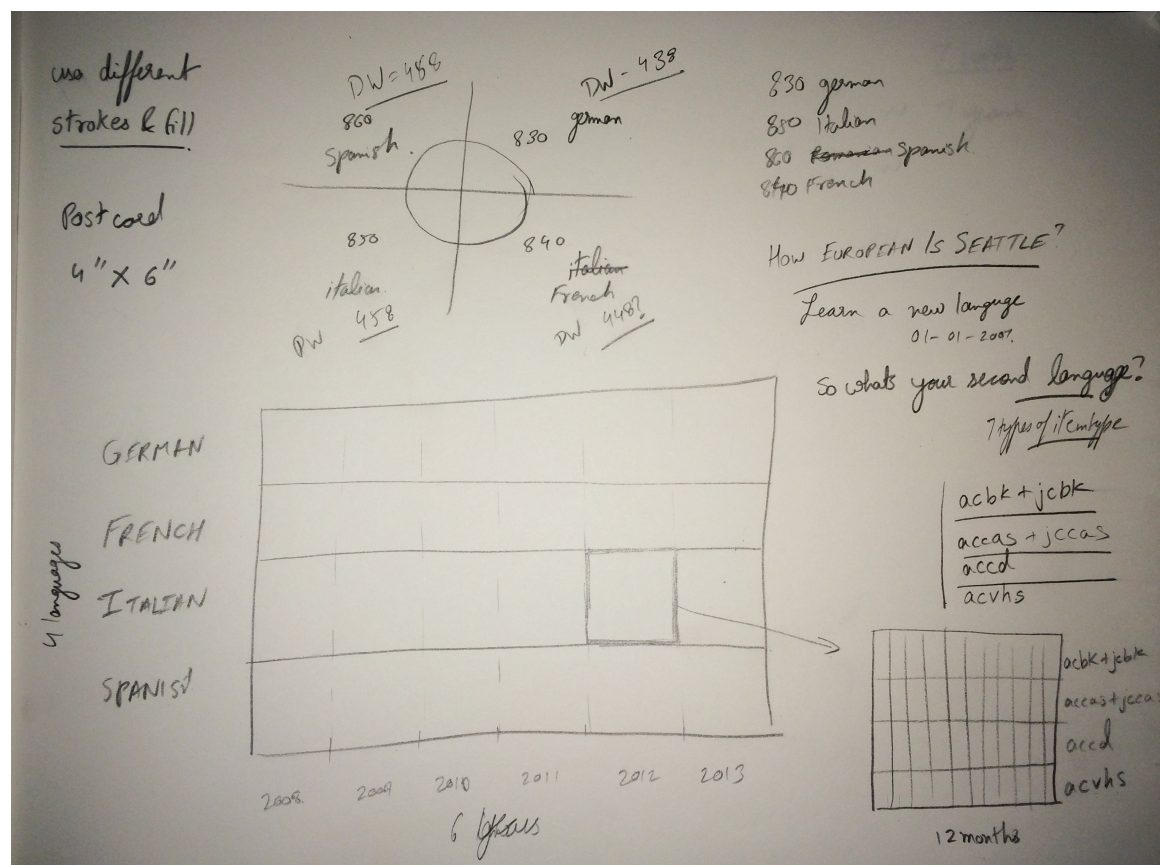 use different
strokes & fill
Postcard
4" X 6"
DW = 458
860
Spanish.
DW - 438
830 german
850
italian.
DW 458
840
italian
French
DW 448?
830 german
850 Italian
860 Romanian Spanish
840 French
HOW EUROPEAN IS SEATTLE?
Learn a new languge
01-01-2007.
So whats your second language?
7 types of itemtype
acbk + jcbk
accas + jccas
accd
acvhs
4 languages
GERMAN
FRENCH
ITALIAN
SPANISH
2008. 2009 2010 2011 2012 2013
6 years
acbk + jcbk
accas + jccas
accd
acvhs
12 months